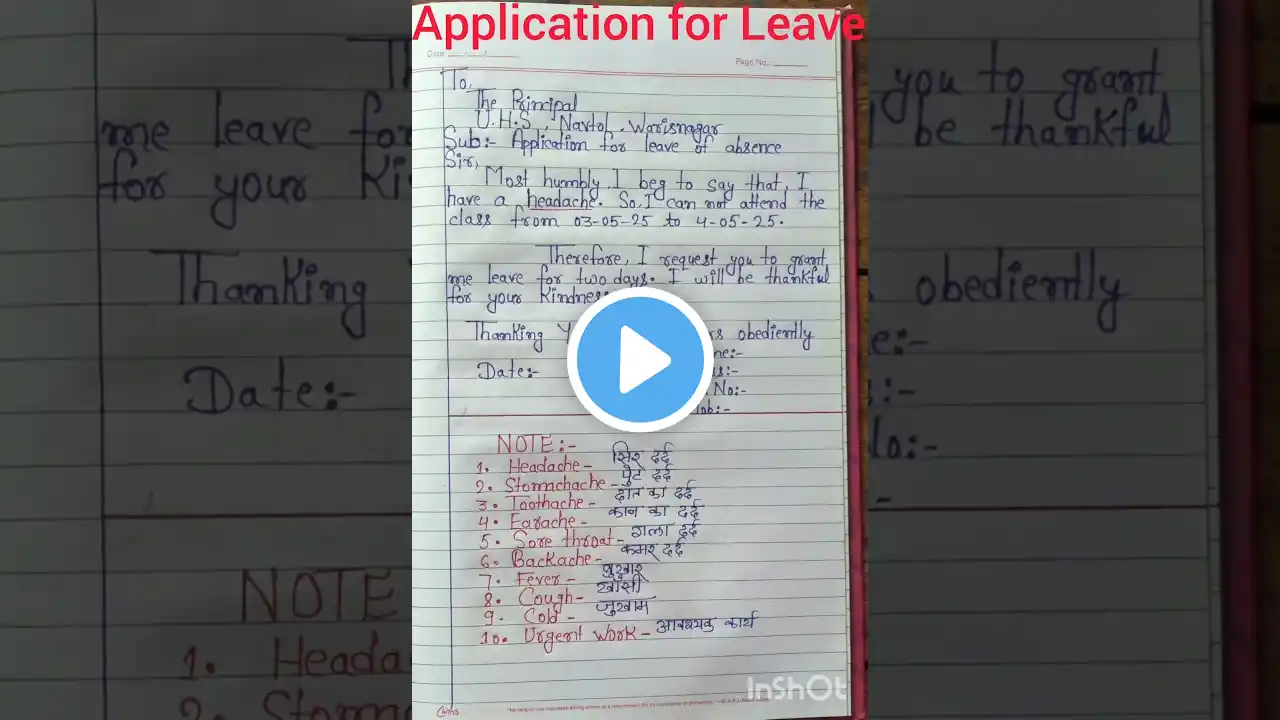 Application for Leave
Date ___/___/______
Page No.: ______
To,
The Principal
U.H.S, Navtol, Warisnagar
Sub:- Application for leave of absence
Sir,
Most humbly, I beg to say that, I
have a headache. So, I can not attend the
class from 03-05-25 to 4-05-25.
Therefore, I request you to grant
me leave for two days. I will be thankful
for your kindness
Thanking Y rs obediently
Date:-
me:-
s:-
No:-
ob:-
NOTE:-
1. Headache - सिर दर्द
2. Stomachache - पेट दर्द
3. Toothache - दाँत का दर्द
4. Earache - कान का दर्द
5. Sore throat - गला दर्द
6. Backache - कमर दर्द
7. Fever - बुखार
8. Cough - खाँसी
9. Cold - जुखाम
10. Urgent work - आवश्यक कार्य
you to grant
me leave for
be thankful
for your Ki
Thanking
obediently
e:-
Date:-
:-
No:-
-
NOTE
1. Heada
2. Stom
InShOt